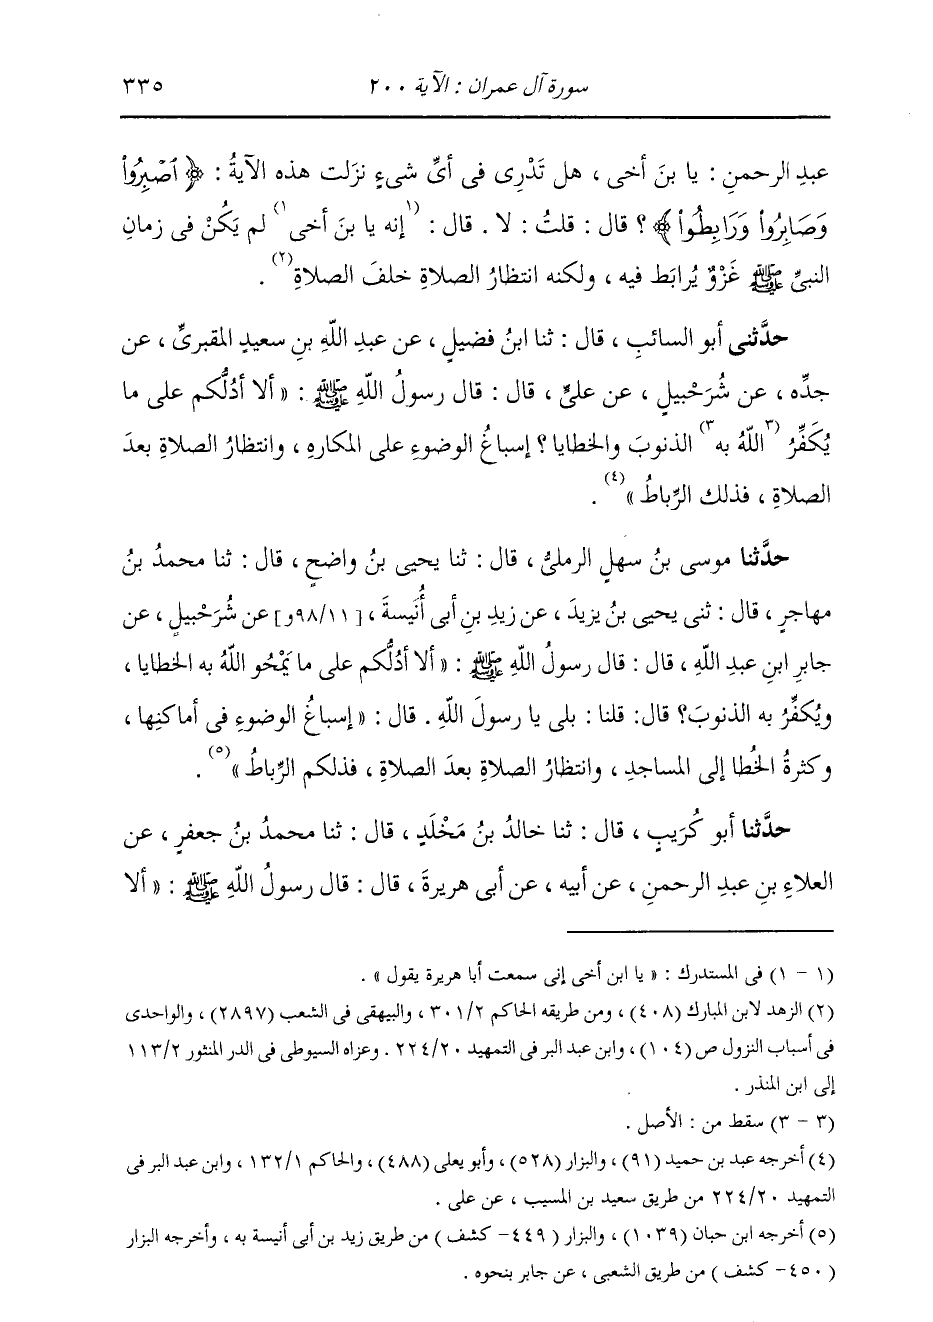 سورة آل عمران : الآية ٢٠٠
٣٣٥
عبدِ الرحمنِ : يا بنَ أخى ، هل تَدْرِى فى أىِّ شىءٍ نزَلت هذه الآيةُ : ﴿ ٱصْبِرُوا۟
وَصَابِرُوا۟ وَرَابِطُوا۟ ﴾ ؟ قال : قلتُ : لا . قال : (١ إنه يا بنَ أخى ١) لم يَكُنْ فى زمانِ
النبىِّ ﷺ غَزْوٌ يُرابَط فيه ، ولكنه انتظارُ الصلاةِ خلفَ الصلاةِ (٢) .
حدَّثنى أبو السائبِ ، قال : ثنا ابنُ فضيلٍ ، عن عبدِ اللَّهِ بنِ سعيدٍ المقبرىِّ ، عن
جدِّه ، عن شُرَحْبيلٍ ، عن علىٍّ ، قال : قال رسولُ اللَّهِ ﷺ : « ألا أدُلُّكم على ما
يُكَفِّرُ (٣ اللَّهُ به ٣) الذنوبَ والخطايا ؟ إسباغُ الوضوءِ على المكارهِ ، وانتظارُ الصلاةِ بعدَ
الصلاةِ ، فذلك الرِّباطُ » (٤) .
حدَّثنا موسى بنُ سهلٍ الرملىُّ ، قال : ثنا يحيى بنُ واضحٍ ، قال : ثنا محمدُ بنُ
مهاجرٍ ، قال : ثنى يحيى بنُ يزيدَ ، عن زيدِ بنِ أبى أُنَيسةَ ، [٩٨/١١و] عن شُرَحْبيلٍ ، عن
جابرِ ابنِ عبدِ اللَّهِ ، قال : قال رسولُ اللَّهِ ﷺ : « ألا أدُلُّكم على ما يَمْحُو اللَّهُ به الخطايا ،
ويُكفِّرُ به الذنوبَ؟ قال: قلنا : بلى يا رسولَ اللَّهِ . قال : « إسباغُ الوضوءِ فى أماكنِها ،
وكثرةُ الخُطا إلى المساجدِ ، وانتظارُ الصلاةِ بعدَ الصلاةِ ، فذلكم الرِّباطُ » (٥) .
حدَّثنا أبو كُرَيبٍ ، قال : ثنا خالدُ بنُ مَخْلَدٍ ، قال : ثنا محمدُ بنُ جعفرٍ ، عن
العلاءِ بنِ عبدِ الرحمنِ ، عن أبيه ، عن أبى هريرةَ ، قال : قال رسولُ اللَّهِ ﷺ : « ألا
(١ - ١) فى المستدرك : « يا ابن أخى إنى سمعت أبا هريرة يقول » .
(٢) الزهد لابن المبارك (٤٠٨) ، ومن طريقه الحاكم ٣٠١/٢ ، والبيهقى فى الشعب (٢٨٩٧) ، والواحدى
فى أسباب النزول ص (١٠٤) ، وابن عبد البر فى التمهيد ٢٢٤/٢٠ . وعزاه السيوطى فى الدر المنثور ١١٣/٢
إلى ابن المنذر .
(٣ - ٣) سقط من : الأصل .
(٤) أخرجه عبد بن حميد (٩١) ، والبزار (٥٢٨) ، وأبو يعلى (٤٨٨) ، والحاكم ١٣٢/١ ، وابن عبد البر فى
التمهيد ٢٢٤/٢٠ من طريق سعيد بن المسيب ، عن على .
(٥) أخرجه ابن حبان (١٠٣٩) ، والبزار ( ٤٤٩- كشف ) من طريق زيد بن أبى أنيسة به ، وأخرجه البزار
( ٤٥٠- كشف ) من طريق الشعبى ، عن جابر بنحوه .